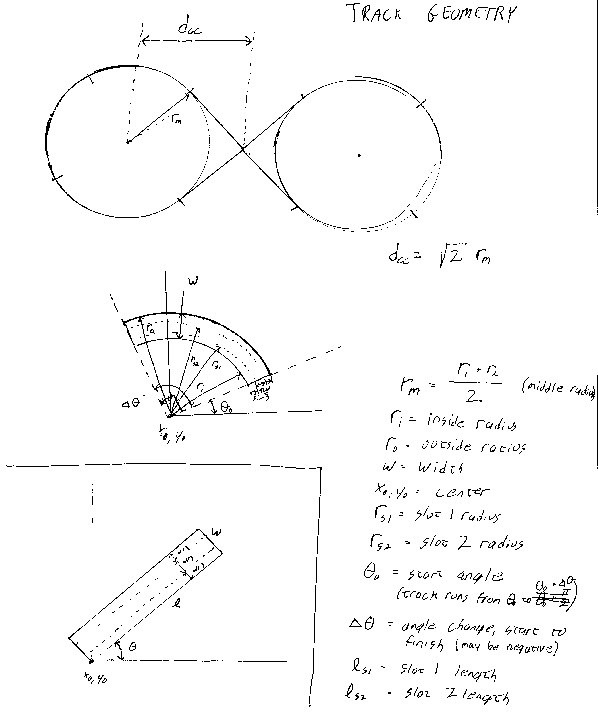 TRACK GEOMETRY
dcc
rm
dcc = √2 rm
w
ro
rs2
rs1
ri
Δθ
θ0
x0, y0
rm = (r1 + r2) / 2 (middle radius)
ri = inside radius
ro = outside radius
w = width
x0, y0 = center
rs1 = slot 1 radius
rs2 = slot 2 radius
θ0 = start angle
(track runs from θ0 to θ0 + Δθ)
Δθ = angle change, start to
finish (may be negative)
ls1 = slot 1 length
ls2 = slot 2 length
w
l
θ
x0, y0